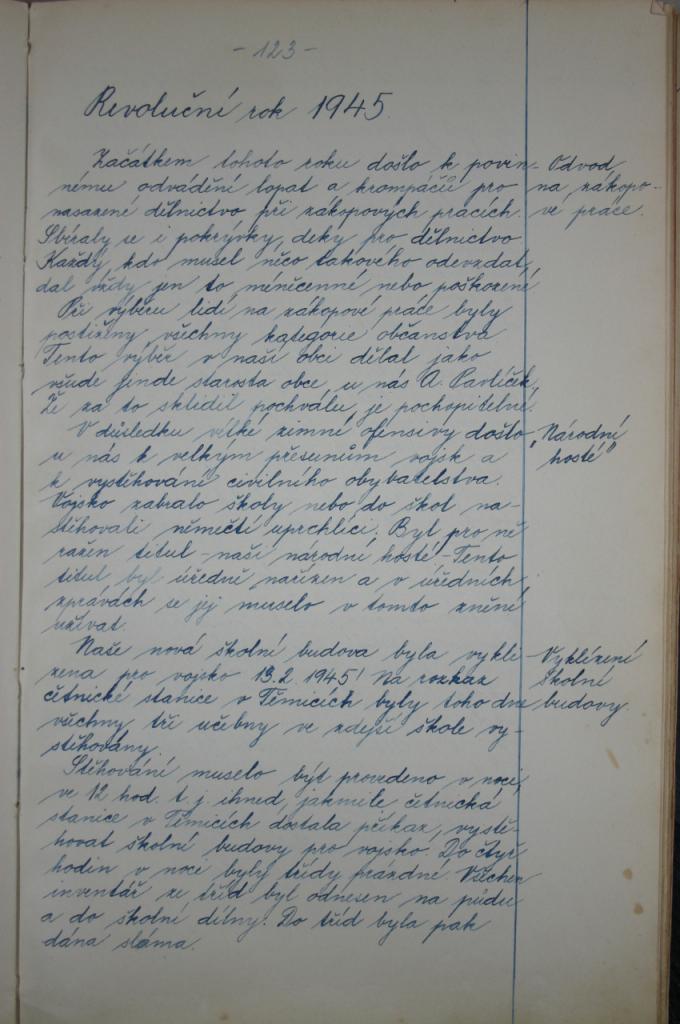 - 123 -
Revoluční rok 1945.
Začátkem tohoto roku došlo k povin-
nému odvádění lopat a krompáčů pro
nasazené dělnictvo při zákopových pracích.
Sbíraly se i pokrývky, deky pro dělnictvo.
Každý, kdo musel něco takového odevzdat,
dal vždy jen to méněcenné nebo poškozené.
Při výběru lidí na zákopové práce byly
postiženy všechny kategorie občanstva.
Tento výběr v naší obci dělal jako
všude jinde starosta obce, u nás A. Pavlíček.
Že za to sklidil pochvalu, je pochopitelné.
V důsledku velké zimní ofensivy došlo
u nás k velkým přesunům vojsk a
k vystěhování civilního obyvatelstva.
Vojsko zabralo školy nebo do škol na-
stěhovali němečtí uprchlíci. Byl pro ně
ražen titul - naši národní hosté - Tento
titul byl úředně nařízen a v úředních
zprávách se jej muselo v tomto znění
užívat.
Naše nová školní budova byla vykli-
zena pro vojsko 13.2. 1945! Na rozkaz
četnické stanice v Těmicích byly toho dne
všechny tři učebny ve zdejší škole vy-
stěhovány.
Stěhování muselo být provedeno v noci,
ve 12 hod. t. j. ihned, jakmile četnická
stanice v Těmicích dostala příkaz, vystě-
hovat školní budovy pro vojsko. Do čtyř
hodin v noci byly třídy prázdné. Všechen
inventář ze tříd byl odnesen na půdu
a do školní dílny. Do tříd byla pak
dána sláma.
Odvod
na zákopo-
vé práce.
"Národní
hosté"
Vyklízení
školní
budovy.